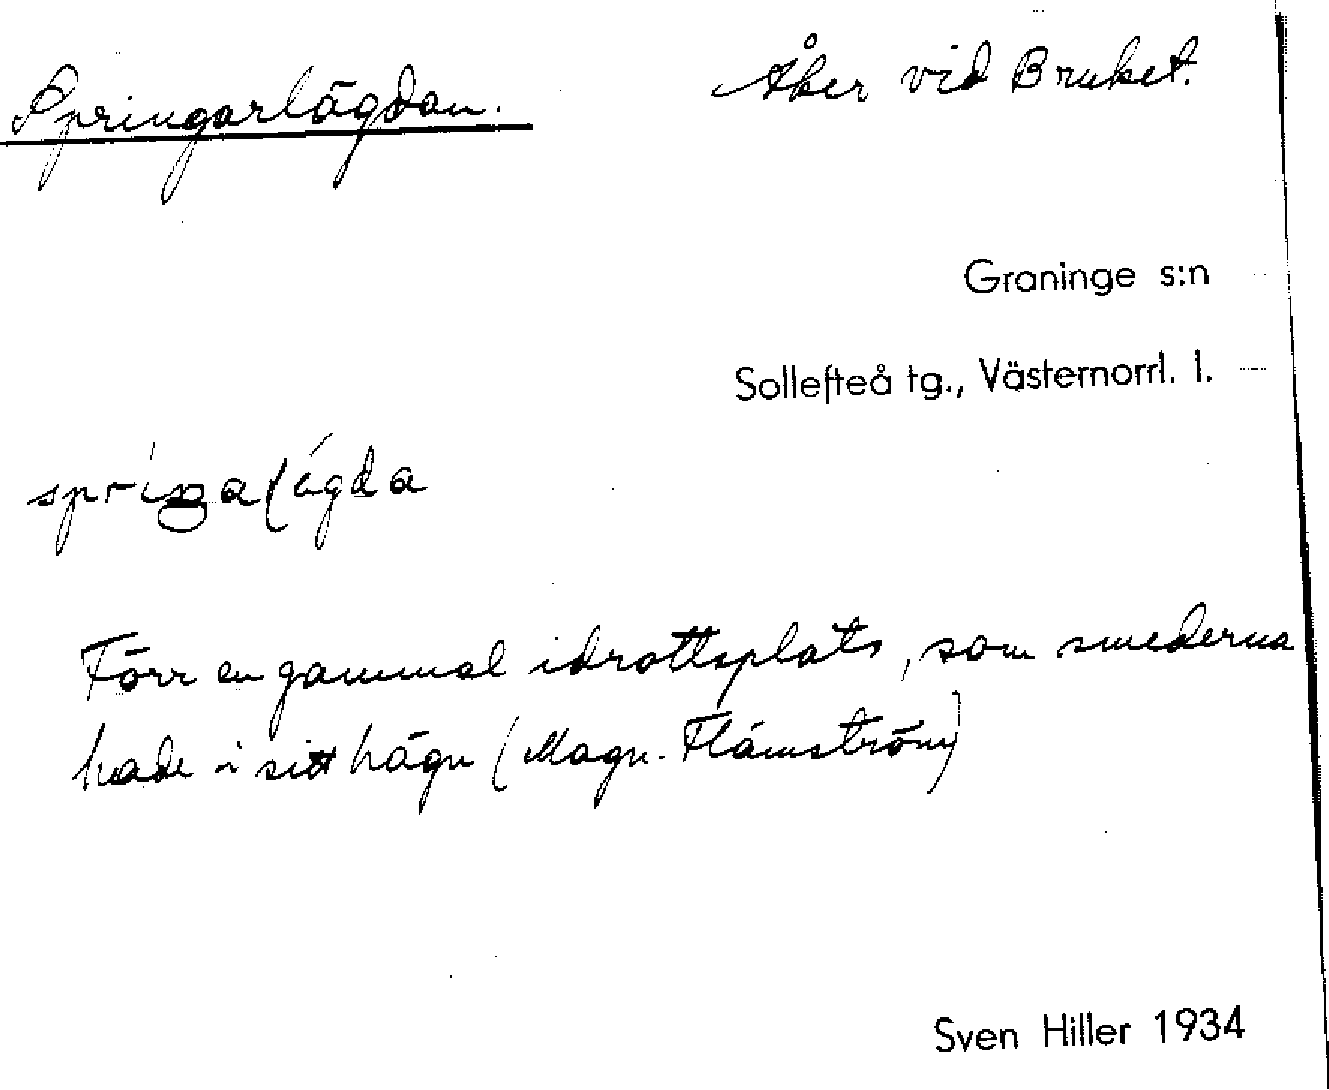 Springarlägdan.
Åker vid Bruket.
Graninge s:n
Sollefteå tg., Västernorrl. l.
Förr en gammal idrottsplats, som smederna
hade i sitt hägn (Magn. Flämström)
Sven Hiller 1934